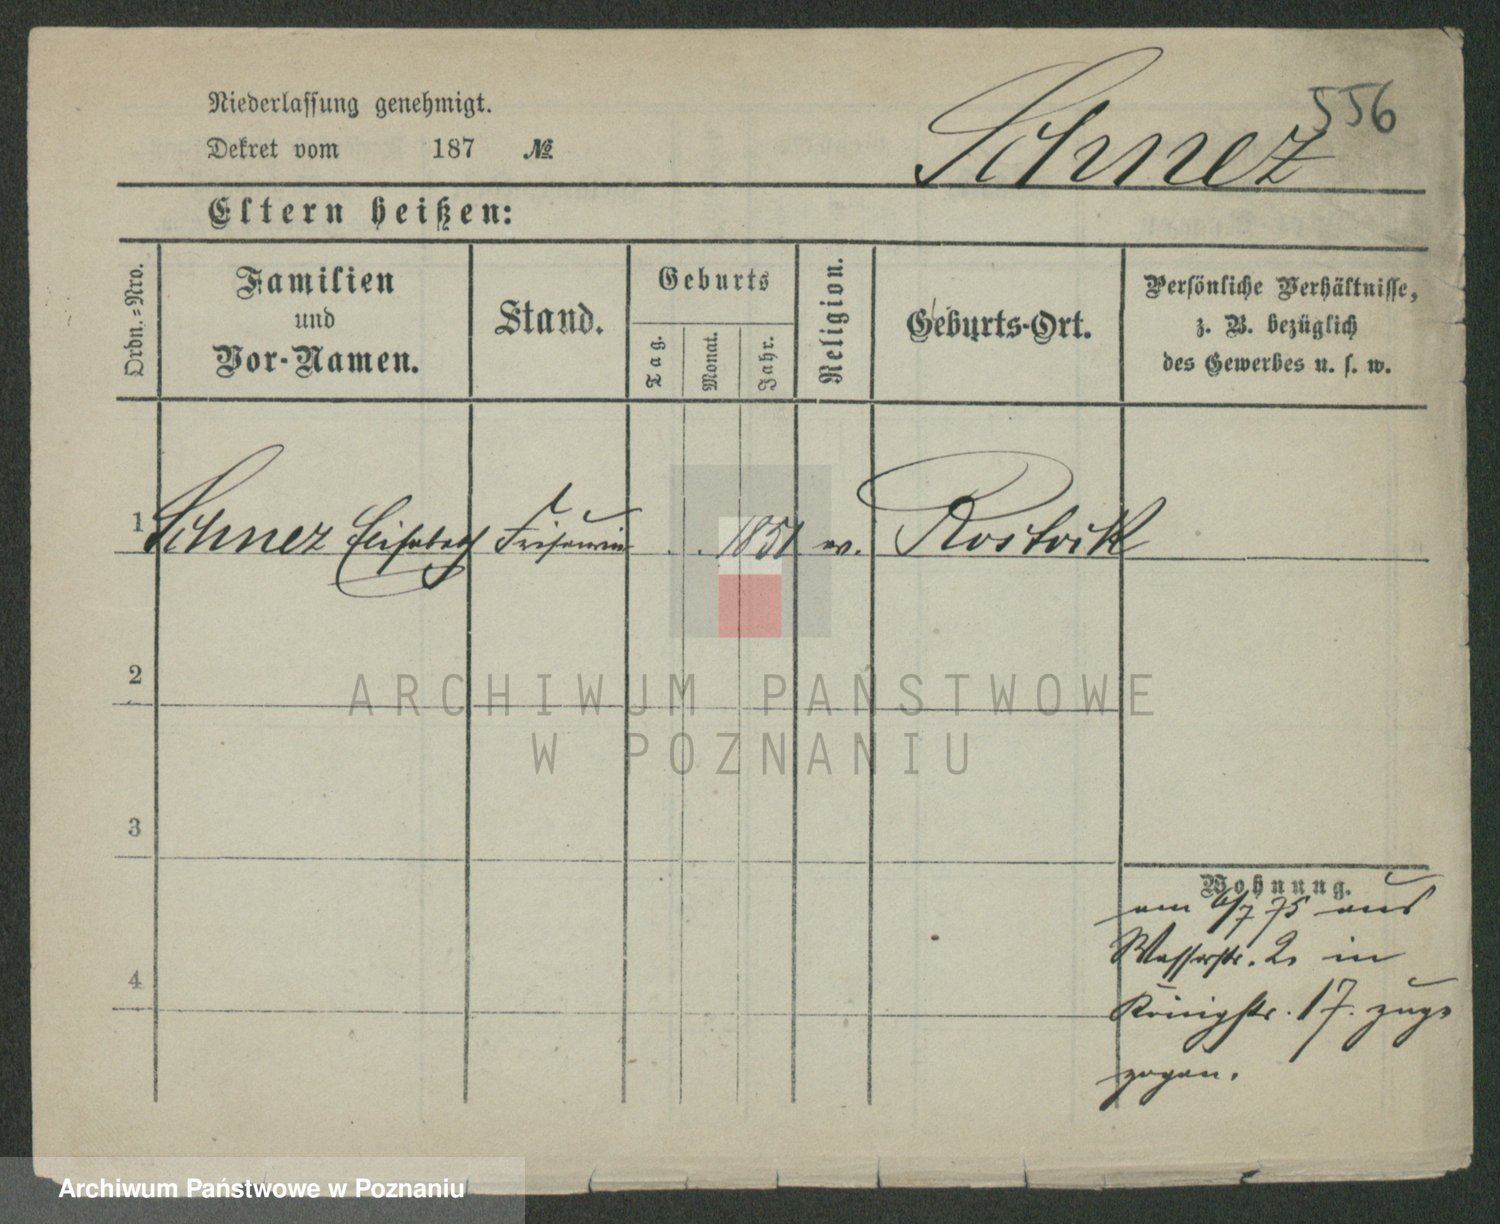 556
Niederlassung genehmigt.
Schnez
Dekret vom 187 №
Eltern heißen:
Ordn.-Nro.
Familien und Vor-Namen.
Stand.
Geburts
Tag.
Monat.
Jahr.
Religion.
Geburts-Ort.
Persönliche Verhältnisse,
z. B. bezüglich
des Gewerbes u. s. w.
1 Schnez Elisabeth Friseurin . . 1851 ev. Rostock
2
3
4
Wohnung.
am 6/7 75 aus
Wasserstr. 2 in
Königstr. 17. zuge
zogen.
ARCHIWUM PAŃSTWOWE
W POZNANIU
Archiwum Państwowe w Poznaniu